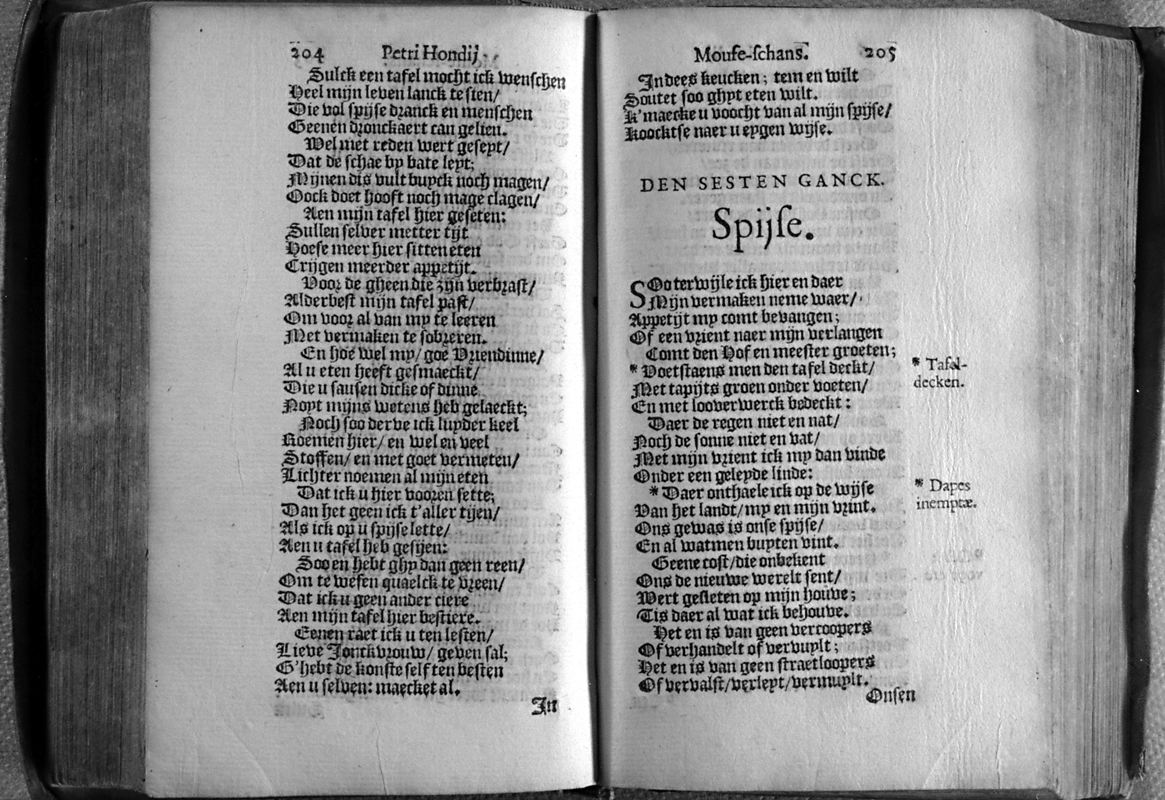 204 Petri Hondij
Sulck een tafel mocht ick wenschen
Heel mijn leven lanck te sien/
Die vol spijse dranck en menschen
Geenen dronckaert can gelien.
Wel met reden wert geseyt/
Dat de schae by bate leyt;
Mijnen dis vult buyck noch magen/
Oock doet hooft noch mage clagen/
Aen mijn tafel hier geseten:
Sullen selver metter tijt
Hoese meer hier sitten eten
Crijgen meerder appetijt.
Voor de gheen die zijn verbrast/
Alderbest mijn tafel past/
Om voor al van my te leeren
Met vermaken te sobreren.
En hoe wel my/ goe Vriendinne/
Al u eten heeft gesmaeckt/
Die u sausen dicke of dinne
Noyt mijns wetens heb gelaeckt;
Noch soo derve ick luyder keel
Roemen hier/ en wel en veel
Stoffen/ en met goet vermeten/
Lichter noemen al mijn eten
Dat ick u hier vooren sette;
Dan het geen ick t'aller tijen/
Als ick op u spijse lette/
Aen u tafel heb gesijen:
Soo en hebt ghy dan geen reen/
Om te wesen quaelck te vreen/
Dat ick u geen ander ciere
Aen mijn tafel hier bestiere.
Eenen raet ick u ten lesten/
Lieve Jonckvrouw/ geven sal;
G'hebt de konste self ten besten
Aen u selven: maecket al.
In
Mouse-schans. 205
In dees keucken; tem en wilt
Soutet soo ghyt eten wilt.
K'maecke u voocht van al mijn spijse/
Koocktse naer u eygen wijse.
DEN SESTEN GANCK.
Spijse.
SOo terwijle ick hier en daer
Mijn vermaken neme waer/
Appetijt my comt bevangen;
Of een vrient naer mijn verlangen
Comt den Hof en meester groeten;
* Voetstaens men den tafel deckt/
Met tapijts groen onder voeten/
En met looverwerck bedeckt:
Daer de regen niet en nat/
Noch de sonne niet en vat/
Met mijn vrient ick my dan vinde
Onder een geleyde linde:
* Daer onthaele ick op de wijse
Van het landt/ my en mijn vrint.
Ons gewas is onse spijse/
En al watmen buyten vint.
Geene cost/ die onbekent
Ons de nieuwe werelt sent/
Wert gesleten op mijn houve;
Tis daer al wat ick behouve.
Het en is van geen vercoopers
Of verhandelt of vervuylt;
Het en is van geen straetloopers
Of vervalst/ verleyt/ vermuylt.
Onsen
* Tafel-
decken.
* Dapes
inemptæ.